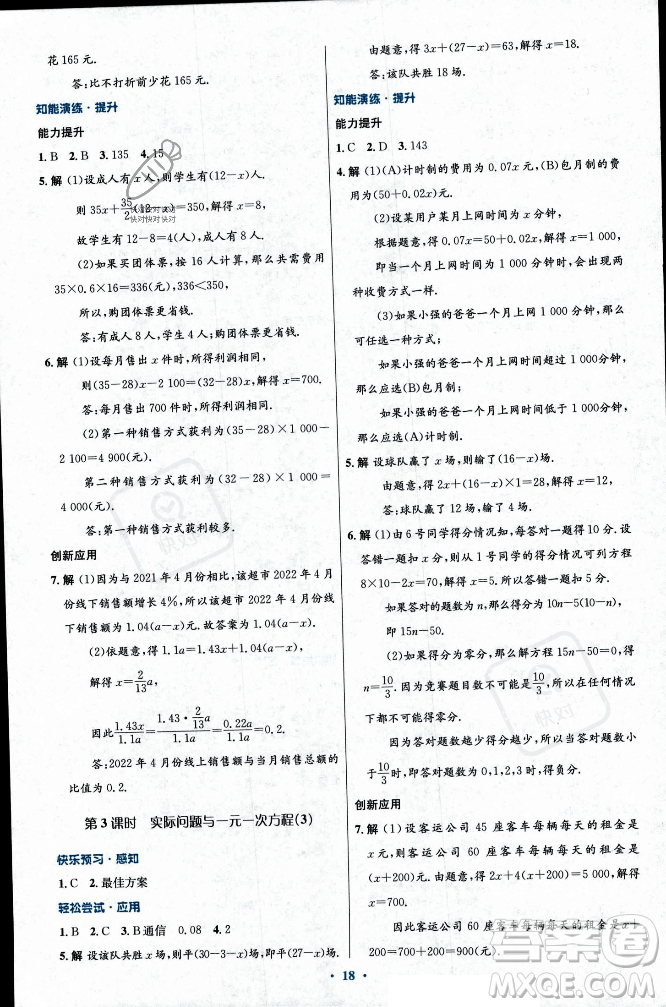 花 165 元.
答:比不打折前少花 165 元.
知能演练·提升
能力提升
1.B 2.B 3.135 4.15
5.解 (1)设成人有 x 人,则学生有(12-x)人.
则 35x+35/2(12-x)=350,解得 x=8,
故学生有 12-8=4(人).
(2)如果买团体票,按 16 人计算,那么共需费用
35×0.6×16=336(元),336<350,
所以,购团体票更省钱.
答:有成人 8 人,学生 4 人,购团体票更省钱.
6.解 (1)设每月售出 x 件时,所得利润相同,
则(35-28)x-2 100=(32-28)x,解得 x=700.
答:每月售出 700 件时,所得利润相同.
(2)第一种销售方式获利为(35-28)×1 000-
2 100=4 900(元).
第二种销售方式获利为(32-28)×1 000=
4 000(元).
答:第一种销售方式获利较多.
创新应用
7.解 (1)因为与 2021 年 4 月份相比,该超市 2022 年 4 月
份线下销售额增长 4%,所以该超市 2022 年 4 月份线下销
售额为 1.04(a-x)元.故答案为 1.04(a-x).
(2)依题意,得 1.1a=1.43x+1.04(a-x),
解得 x=2/13a,
因此1.43x/1.1a=1.43·2/13a/1.1a=0.22a/1.1a=0.2.
答:2022 年 4 月份线上销售额与当月销售总额的
比值为 0.2.
第 3 课时 实际问题与一元一次方程(3)
快乐预习·感知
1.C 2.最佳方案
轻松尝试·应用
1.B 2.C 3.B 通信 0.08 4.2
5.解 设该队共胜 x 场,则平(30-3-x)场,即平(27-x)场.
由题意,得 3x+(27-x)=63,解得 x=18.
答:该队共胜 18 场.
知能演练·提升
能力提升
1.C 2.D 3.143
4.解 (1)(A)计时制的费用为 0.07x 元,(B)包月制的费
用为(50+0.02x)元.
(2)设某用户某月上网的时间为 x 分钟,
根据题意,得 0.07x=50+0.02x,解得 x=1 000,
即当一个月上网的时间为 1 000 分钟时,采用两
种收费方式一样.
(3)如果小强的爸爸一个月上网 1 000 分钟,那么
可任选一种方式;
如果小强的爸爸一个月上网的时间超过 1 000 分钟,
那么应选(B)包月制;
如果小强的爸爸一个月上网的时间少于 1 000 分钟,
那么应选(A)计时制.
5.解 设球队赢了 x 场,则输了(16-x)场.
由题意,得 2x+(16-x)×1=28,解得 x=12,
答:球队赢了 12 场,输了 4 场.
6.解 (1)由 6 号同学得分情况知,每答对一题得 10 分,设
答错一题得 x 分,则由 5 号同学得分情况可列方程
8×10-2x=70,解得 x=5,所以答错一题扣 5 分.
如果答对的题数为 n,那么所得分为 10n-5(10-n)
分,即 15n-50.
(2)如果得分为零分,那么解方程 15n-50=0,得
n=10/3,因为竞赛题目数不可能为10/3,所以在任何情况
下都不可能得零分.
因为答对题数越少得分越少,所以当答对题数少
于10/3时,即答对题数小于或等于 3 时,得负分.
创新应用
7.解 (1)设客运公司 45 座客车每辆每天的租金是
x 元,则客运公司 60 座客车每辆每天的租金是
(x+200)元,由题意得 2x+4(x+200)=5 000,解得
x=700.
因此客运公司 60 座客车每辆每天的租金是 x+
200=700+200=900(元).
18
快对快对快对
快对快对快对
快对
快对
答案圈
MXQE.COM